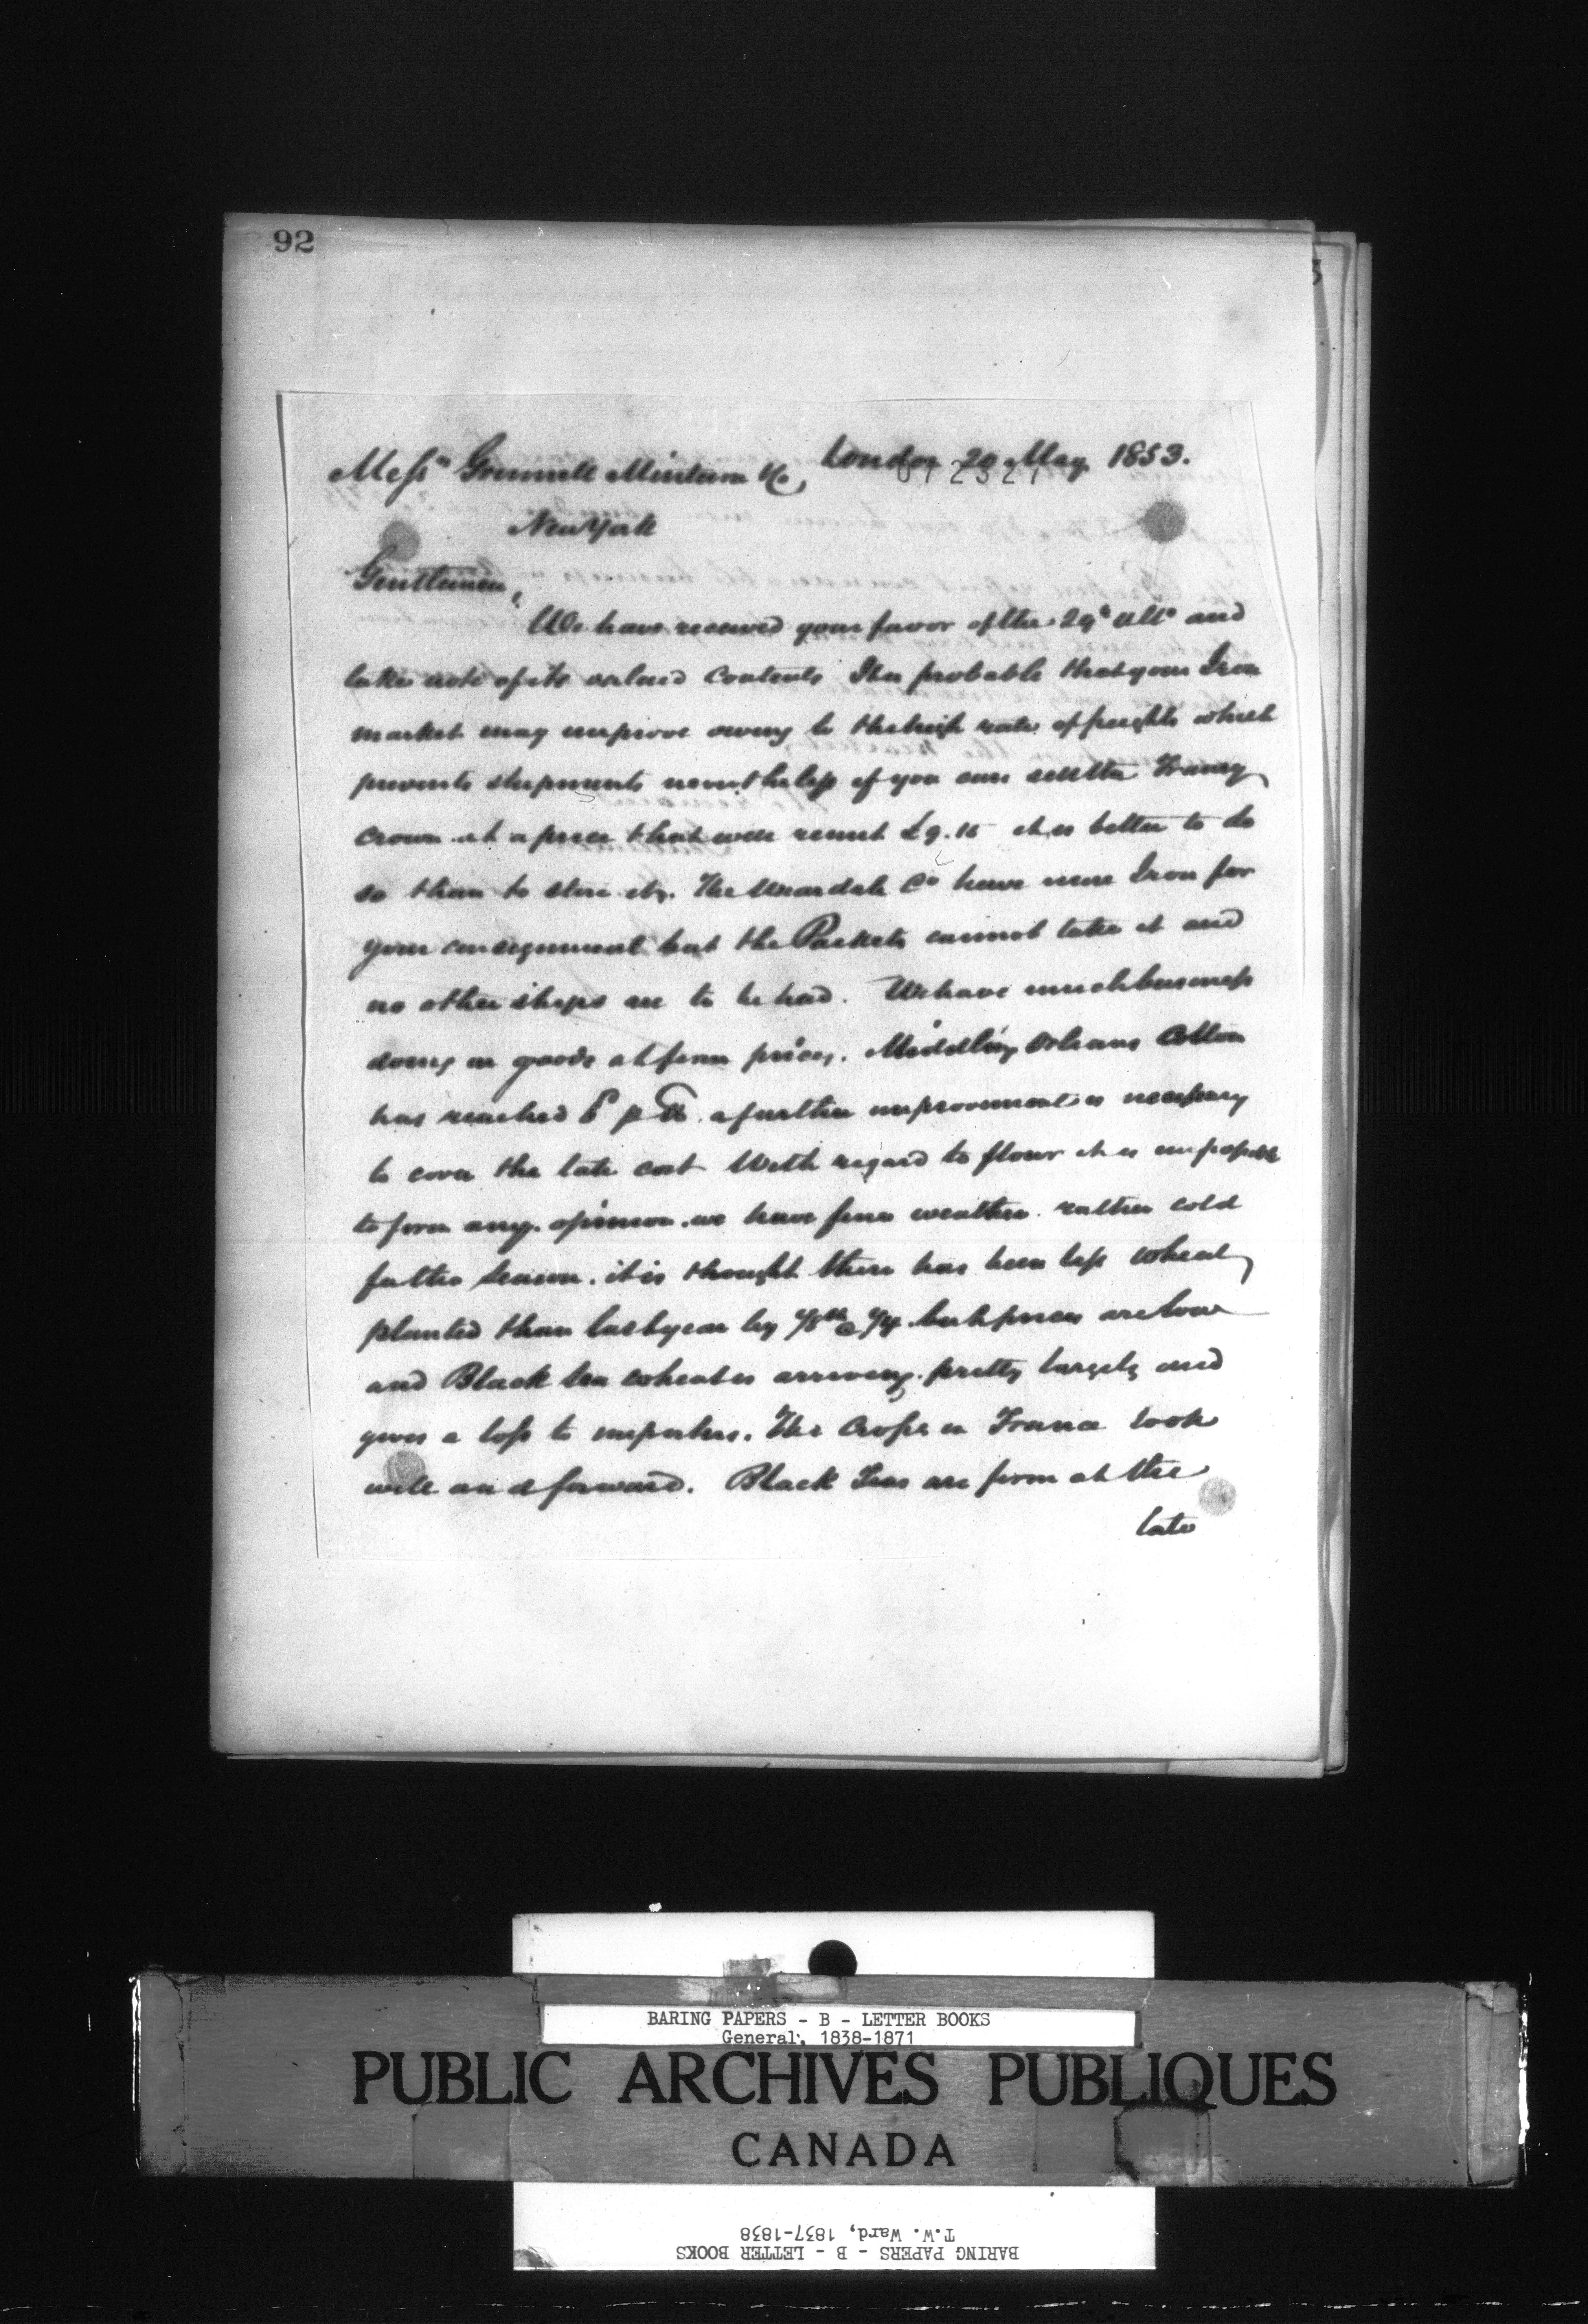 92
London 20 May 1853.
072327
Mess<sup>rs</sup> Grinnell Minturn & Co,
New York
Gentlemen,
We have received your favor of the 29<sup>th</sup> ult<sup>o</sup> and
take note of its valued contents It is probable that your Iron
market may improve owing to the high rate of freights which
prevents shipments nevertheless if you can sell the
Crown at a price that will remit £9.15 it is better to do
so than to store it. The Weardale C<sup>o</sup> have more Iron for
your consignment but the Packets cannot take it and
no other ships are to be had. We have much business
doing in goods at firm prices. Middling Orleans Cotton
has reached 6<sup>d</sup> p lb. a further improvement is necessary
to cover the late cost With regard to flour it is impossible
to form any opinion. we have fine weather rather cold
for the season. it is thought there has been less wheat
planted than last year by 1/5<sup>th</sup> @ 1/4. but prices are low
and Black Sea wheat is arriving pretty largely and
gives a loss to importers. The Crops in France look
well and forward. Black Teas are firm at the
late
BARING PAPERS - B - LETTER BOOKS
General, 1838-1871
PUBLIC ARCHIVES PUBLIQUES
CANADA
T.W. Ward, 1837-1838
BARING PAPERS - B - LETTER BOOKS